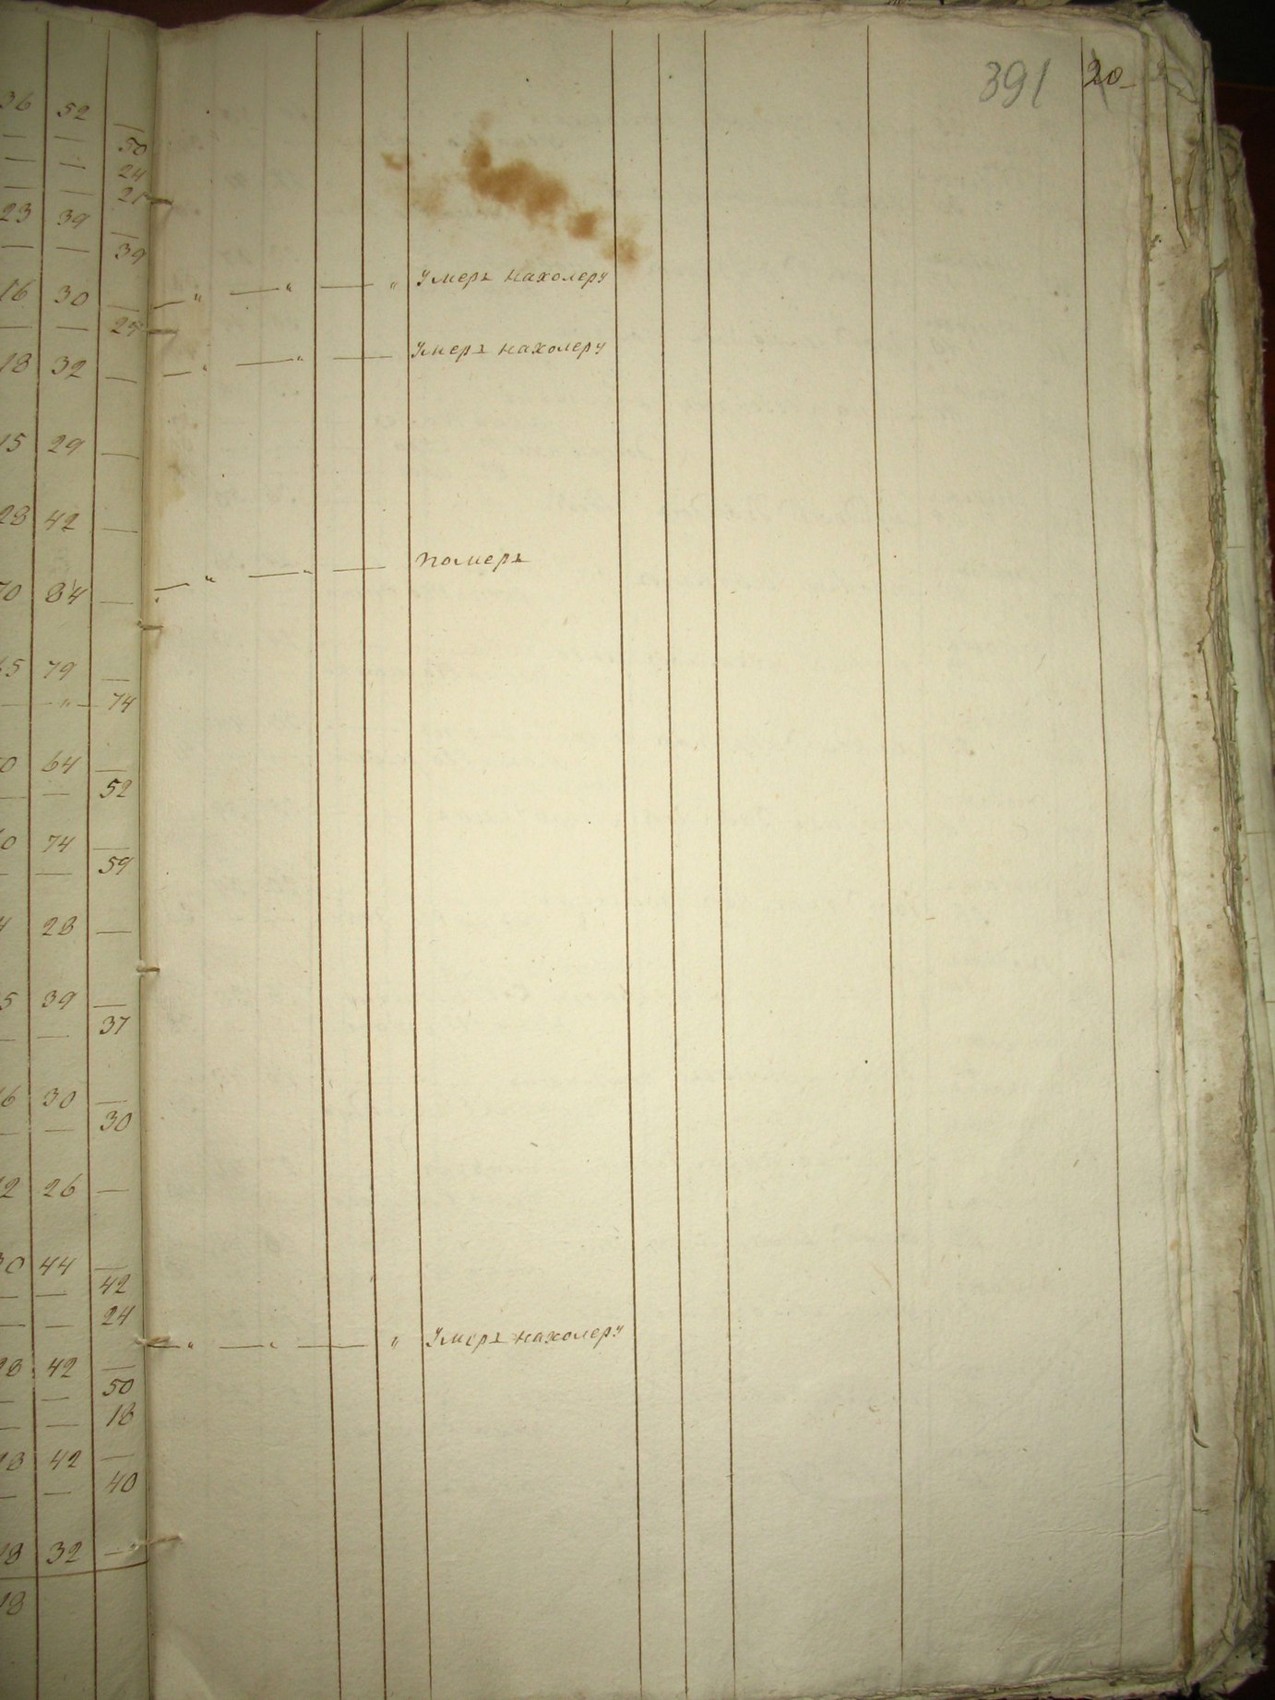 391 20
36 52 —
— — 50
— — 24
— — 21
23 39 —
— — 39
16 30 — — " — " — " Умеръ нахолеру
— — 27
18 32 — — " — " — Умеръ нахолеру
15 29 —
28 42 —
70 84 — — " — " — Померъ
65 79 —
— " — 74
0 64 —
— — 52
0 74 —
— — 59
4 28 —
5 39 —
— — 37
6 30 —
— — 30
12 26 —
30 44 —
— — 42
— — 24 — " — " — " Умеръ нахолеру
28 42 —
— — 50
— — 18
28 42 —
— — 40
18 32 —
18